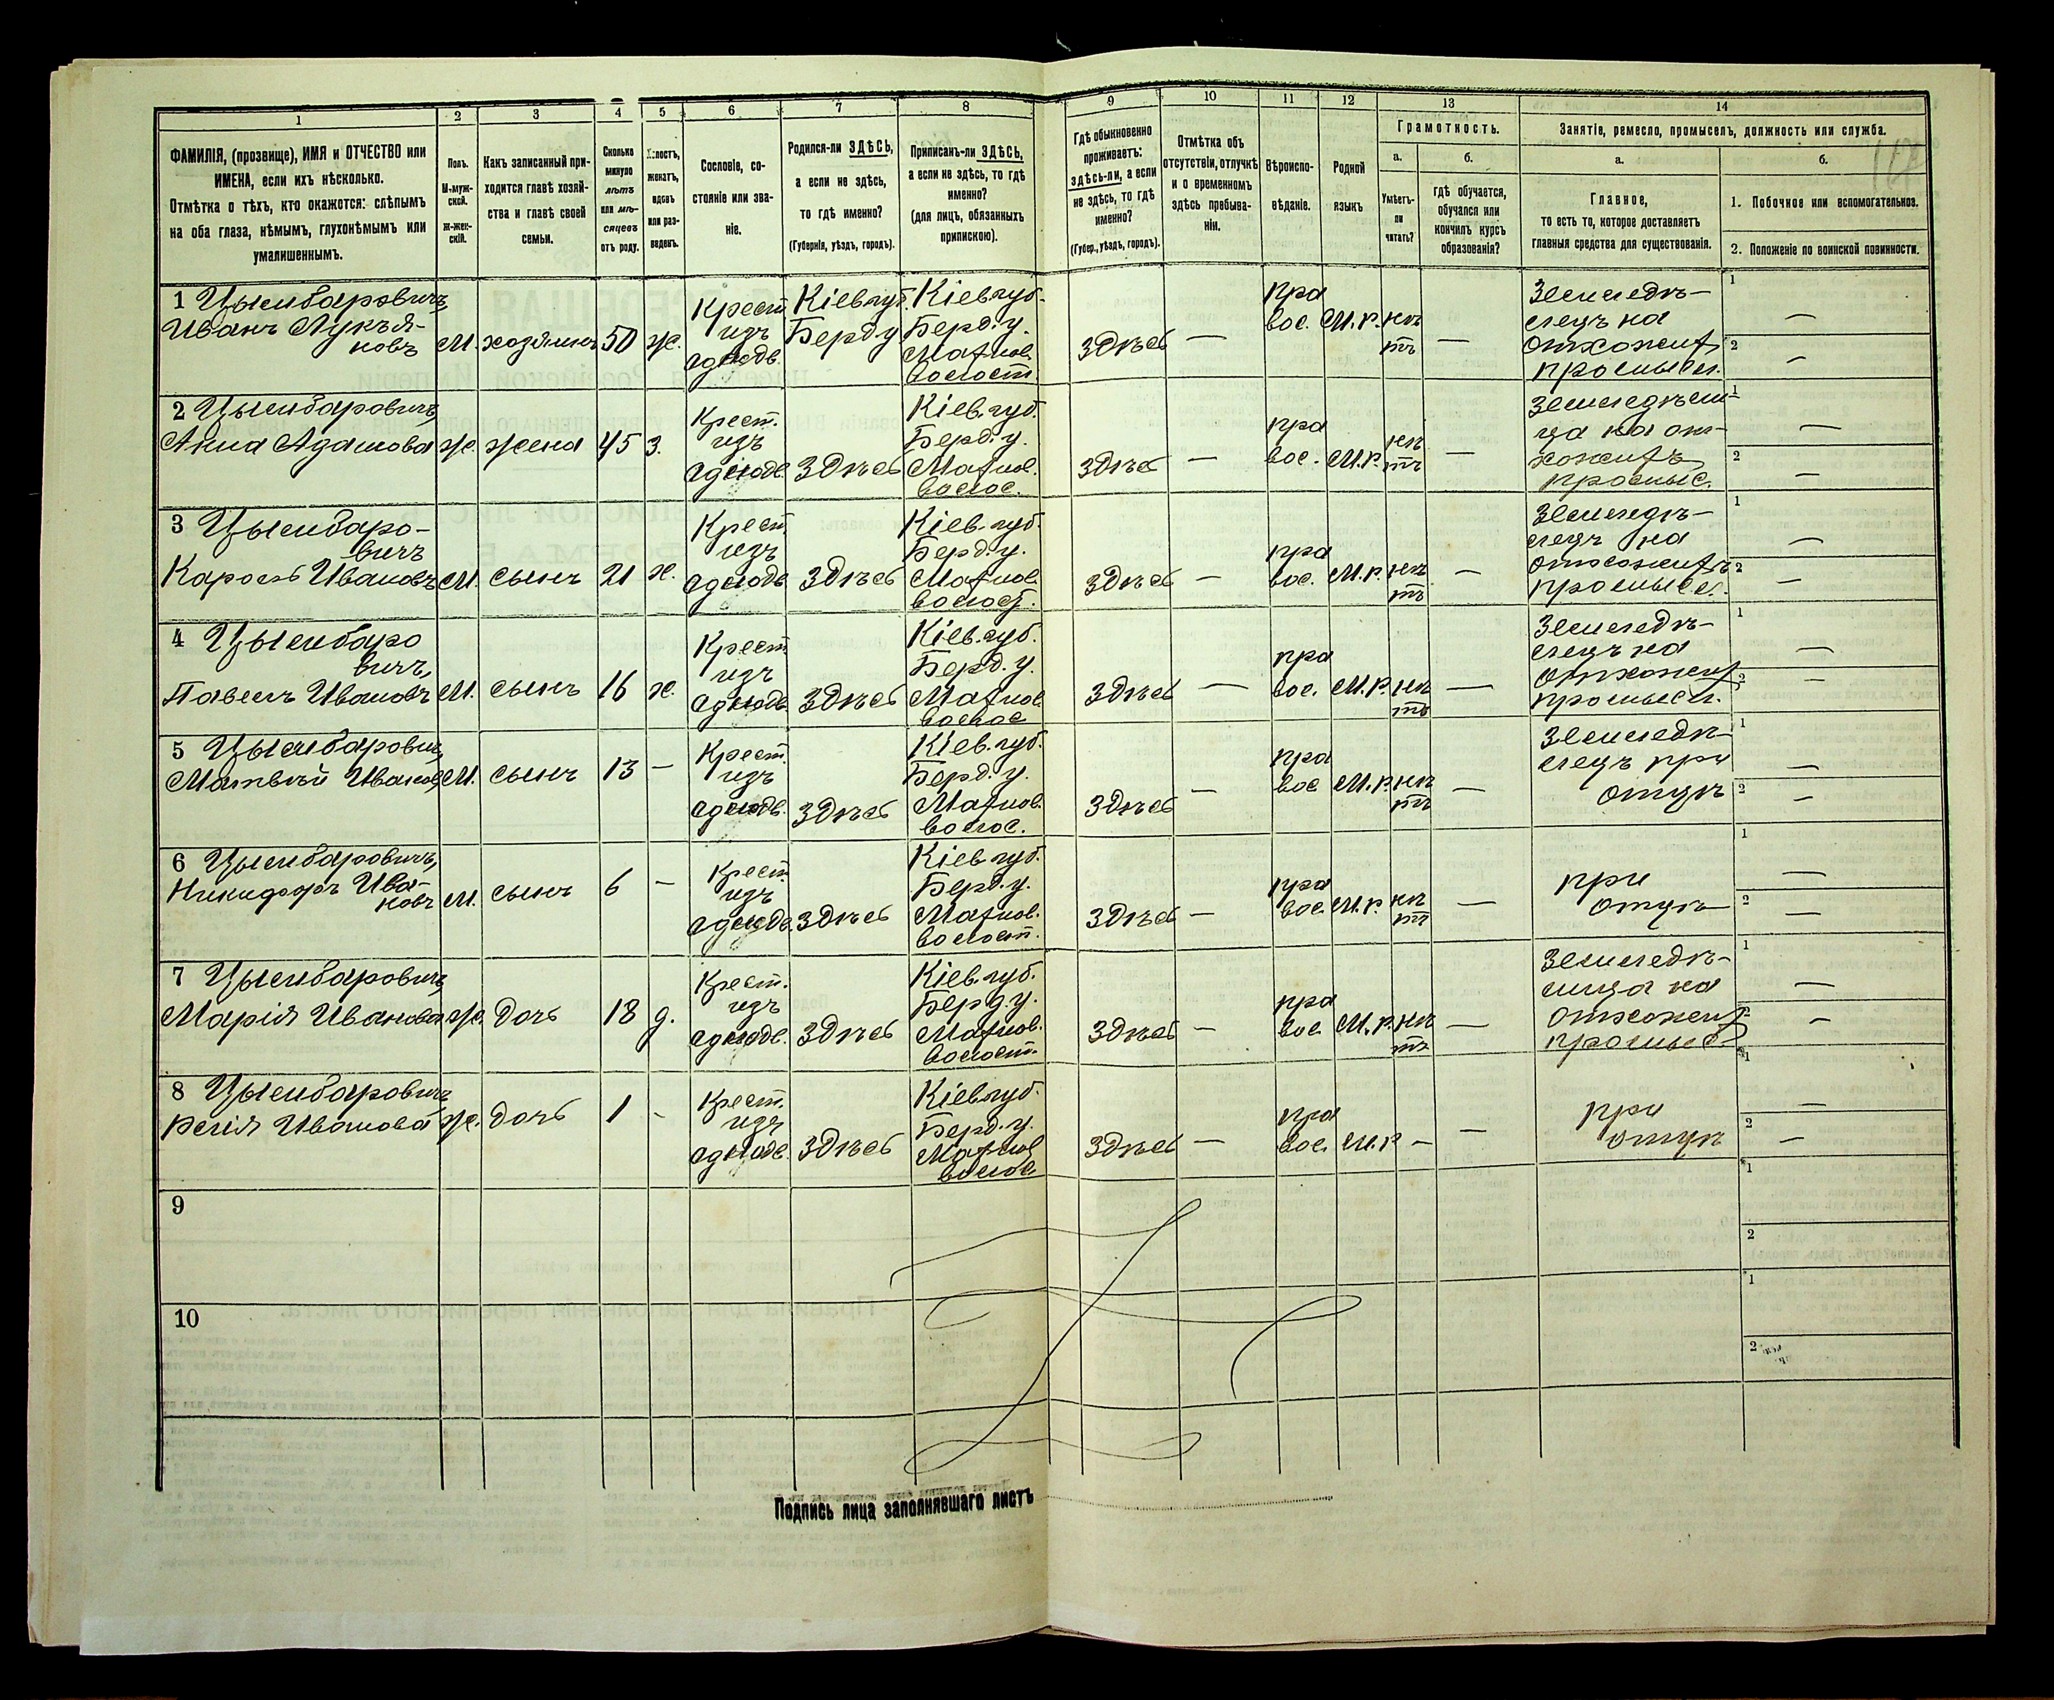 1 2 3 4 5 6 7 8 9 10 11 12 13 14
ФАМИЛІЯ, (прозвище), ИМЯ и ОТЧЕСТВО или
ИМЕНА, если ихъ нѣсколько.
Отмѣтка о тѣхъ, кто окажется: слѣпымъ
на оба глаза, нѣмымъ, глухонѣмымъ или
умалишеннымъ.
Полъ.
М-муж-
ской.
Ж-жен-
скій.
Какъ записанный при-
ходится главѣ хозяй-
ства и главѣ своей
семьи.
Сколько
минуло
лѣтъ
или мѣ-
сяцевъ
отъ роду.
Холостъ,
женатъ,
вдовъ
или раз-
веденъ.
Сословіе, со-
стояніе или зва-
ніе.
Родился-ли ЗДѢСЬ,
а если не здѣсь,
то гдѣ именно?
(Губернія, уѣздъ, городъ).
Приписанъ-ли ЗДѢСЬ,
а если не здѣсь, то гдѣ
именно?
(для лицъ, обязанныхъ
припискою).
Гдѣ обыкновенно
проживаетъ:
здѣсь-ли, а если
не здѣсь, то гдѣ
именно?
(Губер., уѣздъ, городъ).
Отмѣтка объ
отсутствіи, отлучкѣ
и о временномъ
здѣсь пребыва-
ніи.
Вѣроиспо-
вѣданіе.
Родной
языкъ
Грамотность.
а.
Умѣетъ-
ли
читать?
б.
гдѣ обучается,
обучался или
кончилъ курсъ
образованія?
Занятіе, ремесло, промыселъ, должность или служба.
а.
Главное,
то есть то, которое доставляетъ
главныя средства для существованія.
б.
1. Побочное или вспомогательное.
2. Положеніе по воинской повинности.
1 Цымбаровичъ
Иванъ Лукья-
новъ
М. хозяинъ 50 ж.
Крест.
изъ
однодв.
Кіев. губ.
Берд. у.
Кіев. губ.
Берд. у.
Махнов.
волост.
Здѣсь —
пра
вос. М. р. нѣ
тъ —
Земледѣ-
лецъ на
отхожихъ
промысл.
1 —
2 —
2 Цымбаровичъ
Анна Адамова ж. жена 45 з.
Крест.
изъ
однодв.
Здѣсь
Кіев. губ.
Берд. у.
Махнов.
волос.
Здѣсь —
пра
вос. М. р. нѣ
тъ —
земледѣли-
ца на от-
хожихъ
промыс.
1 —
2 —
3 Цымбаро-
вичъ
Кароль Ивановъ М. сынъ 21 х.
Крест.
изъ
однодв.
Здѣсь
Кіев. губ.
Берд. у.
Махнов.
волост.
Здѣсь —
пра
вос. М. р. нѣ
тъ —
Земледѣ-
лецъ на
отхожихъ
промысл.
1 —
2 —
4 Цымбаро
вичъ
Павелъ Ивановъ М. сынъ 16 х.
Крест.
изъ
однодв.
Здѣсь
Кіев. губ.
Берд. у.
Махнов.
волос
Здѣсь —
пра
вос. М. р. нѣ
тъ —
Земледѣ-
лецъ на
отхожихъ
промысл.
1 —
2 —
5 Цымбаровичъ
Матвѣй Ивановъ М. сынъ 13 —
Крест.
изъ
однодв.
Здѣсь
Кіев. губ.
Берд. у.
Махнов.
волос.
Здѣсь —
пра
вос. М. р. нѣ
тъ —
Земледѣ-
лецъ при
отцѣ
1 —
2 —
6 Цымбаровичъ,
Никифоръ Ива-
новъ М. сынъ 6 —
Крест.
изъ
однодв.
Здѣсь
Кіев. губ.
Берд. у.
Махнов.
волост.
Здѣсь —
пра
вос. М. р. нѣ
тъ —
при
отцѣ
1 —
2 —
7 Цымбаровичъ
Марія Иванова ж. дочь 18 д.
Крест.
изъ
однодв.
Здѣсь
Кіев. губ.
Берд. у.
Махнов.
волост.
Здѣсь —
пра
вос. М. р. нѣ
тъ —
Земледѣ-
лица на
отхожихъ
промыс.
1 —
2 —
8 Цымбаровичъ
Иванова ж. дочь 1 -
Крест.
изъ
однодв.
Здѣсь
Кіев. губ.
Берд. у.
Махнов
волос
Здѣсь —
пра
вос. М. р — —
при
отцѣ
1 —
2 —
9
1
2
10
1
2
Подпись лица заполнявшаго листъ